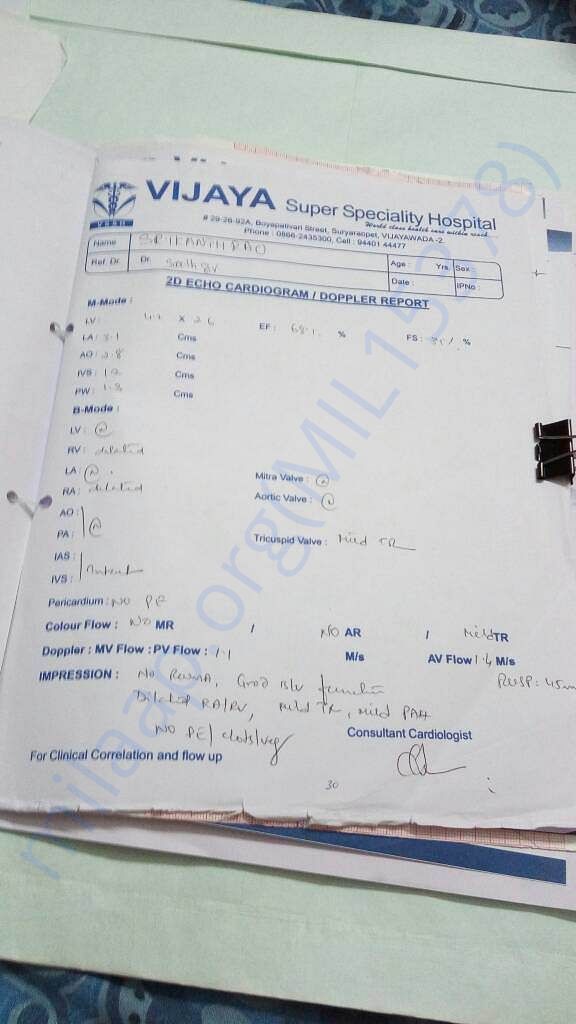 VIJAYA Super Speciality Hospital
World class health care within reach
VSSH
# 29-26-92A, Boyapativari Street, Suryaraopet, VIJAYAWADA -2.
Phone : 0866-2435300, Cell : 94401 44477
Name SRIKANTH RAO
Ref. Dr. Dr. Age : Yrs. Sex :
Date : IPNo :
2D ECHO CARDIOGRAM / DOPPLER REPORT
M-Mode :
LV : EF : 68% % FS : %
LA : 3.1 Cms
AO : 2.8 Cms
IVS : Cms
PW : Cms
B-Mode :
LV : N
RV : dilated
LA : N Mitra Valve : N
RA : dilated Aortic Valve : N
AO :
PA : N Tricuspid Valve : Mild TR
IAS :
IVS : Intact
Pericardium : NO PE
Colour Flow : NO MR / NO AR / Mild TR
Doppler : MV Flow : PV Flow : 1.1 M/s AV Flow 1.4 M/s
RVSP : 45m
IMPRESSION : No RWMA, Good function
Dilated RA/RV, Mild TR, Mild PAH
NO PE/clots/veg
Consultant Cardiologist
For Clinical Correlation and flow up
30
milaap.org(MIL15378)